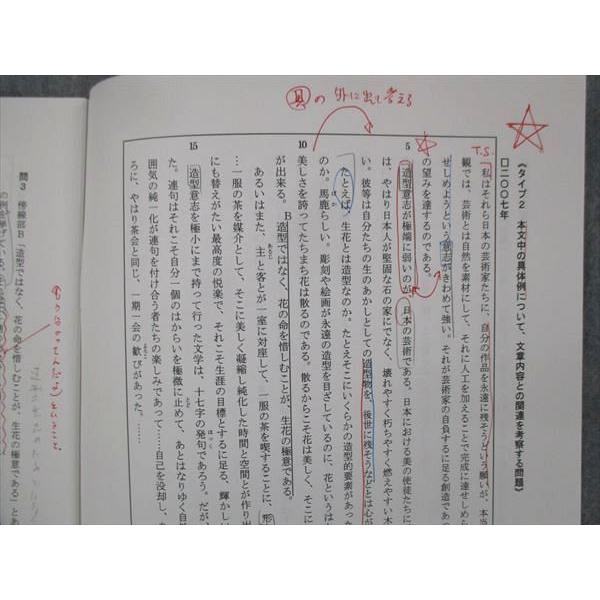 具の外に出して考える
T.S.
《タイプ2 本文中の具体例について、文章内容との関連を考察する問題》
□二〇〇七年
私はそれら日本の芸術家たちに、自分の作品を永遠に残そうという願いが、本当
観では、芸術とは自然を素材にして、それに人工を加えることで完成に達せしめら
せしめようという意志がきわめて強い。それが芸術家の自負するに足る創造であっ
の望みを達するのである。
5
造型意志が極端に弱いのが、日本の芸術である。日本における美の使徒たちに
は、やはり日本人が堅固な石の家にでなく、壊れやすく朽ちやすく燃えやすい木
い。彼等は自分たちの生のあかしとしての造型物を、後世に残そうなどとは心が
たとえば、生花とは造型なのか。たとえそこにいくらかの造型的要素があった
のか。馬鹿らしい。彫刻や絵画が永遠の造型を目ざしているのに、花というはか
ばか
10
美しさを誇ってたちまち花は散るのである。散るからこそ花は美しく、そこに
が出来る。B造型ではなく、花の命を惜しむことが、生花の極意である。
あるいはまた、主と客とが一室に対座して、一服の茶を喫することに、形
あるじ
…一服の茶を媒介として、そこに美しく凝縮し純化した時間と空間とが作り出
にも替えがたい最高度の悦楽で、それこそ生涯の目標とするに足る、輝かしい
15
造型意志を極小にまで持って行った文学は、十七字の発句であろう。だが、
ほっく
た。連句はそれこそ自分一個のはからいを極微に止めて、あとはなりゆく自
とど
囲気の純一化が連句を付け合う者たちの楽しみであって……自己を没却し、ま
ろに、やはり茶会と同じ、一期一会の歓びがあった。……
よろこ
問3
傍線部B「造型ではなく、花の命を惜しむことが、生花の極意である」とあ